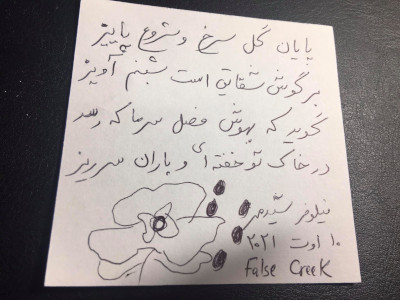 پایان گل سرخ و شروع پاییز
بر گوش شقایق است شبنم آویز
گوید که بهوش فصل سرما که رسد
در خاک تو خفته ای و باران سرریز
نیلوفر سیدمر
۱۰ اوت ۲۰۲۱
False Creek